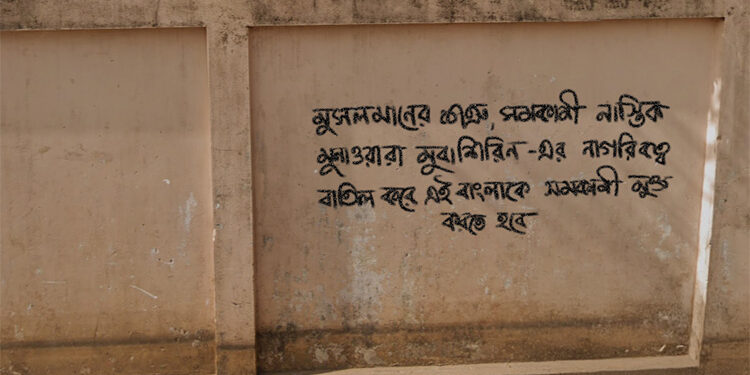 মুসলমানের শত্রু, সমকামী নাস্তিক
মুনাওয়ারা মুবাশিরিন-এর নাগরিকত্ব
বাতিল করে এই বাংলাকে সমকামী মুক্ত
করতে হবে